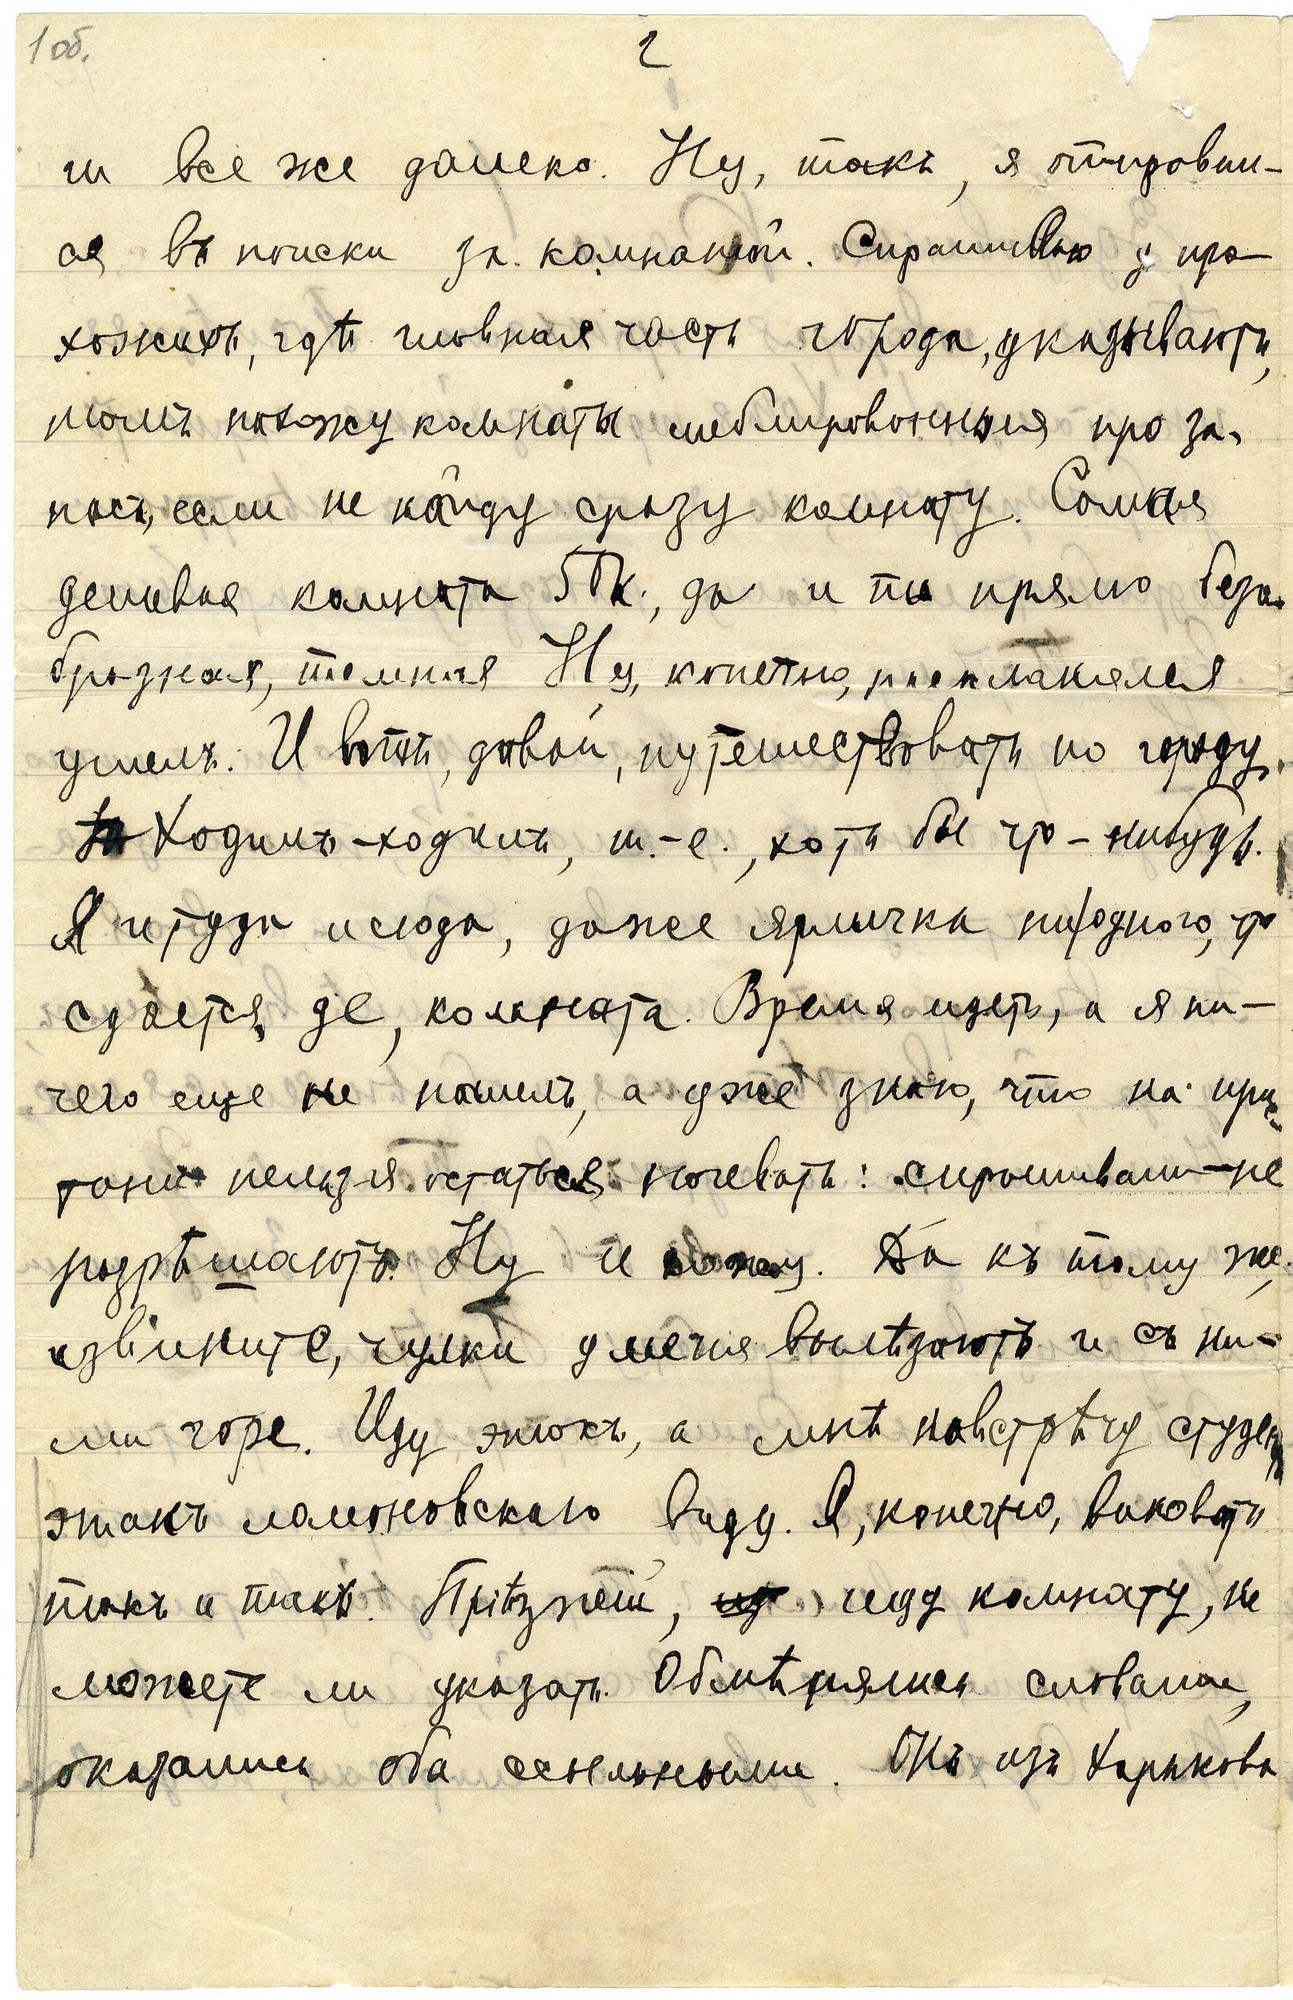 1 об.
2
ш все же далеко. Ну, такъ, я отправил-
ся въ поиски за комнатой. Спрашиваю у про-
хожихъ, гдѣ главная часть города, указываютъ,
тамъ нахожу комнаты меблированныя про за-
пасъ, если не найду сразу комнату. Самая
дешевая комната 50 к., да и та прямо безо-
бразная, темная Ну, конечно, раскланялся
ушелъ. И вотъ, давай, путешествовать по городу.
Ходилъ-ходилъ, т.-е., хоть бы что-нибудь.
Я и туда и сюда, даже ярлычка ни одного, что
сдается, де, комната. Время идетъ, а я ни-
чего еще не нашелъ, а уже знаю, что на при-
стани нельзя остаться ночевать: спрашивали-не
разрѣшаютъ. Ну и хожу. Да къ тому же,
извините, чулки у меня вылѣзаютъ и съ ни-
ми горе. Иду этакъ, а мнѣ навстрѣчу студентъ
этакъ малоновскаго виду. Я, конечно, виноватъ
такъ и такъ. Пріѣзжій, ищу комнату, не
можете ли указать. Обмѣнялись словами,
оказались оба ссыльными. Онъ изъ Харькова